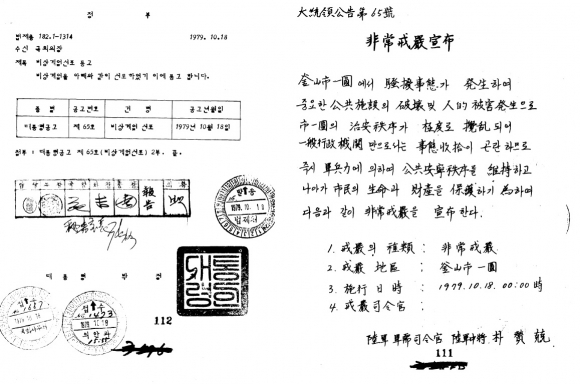 정 부
법제용 182.1-1314
1979. 10. 18
수신 국회의장
제목 비상계엄선포 통고
비상계엄을 아래와 같이 선포하였기 이에 통고 합니다.
종 별 공고번호 건 명 공고년월일
대통령공고 제 65호 비상계엄 선포 1979년 10월 18일
첨부 : 대통령공고 제 65호(비상계엄선포) 2부. 끝.
報告
1979.10.18
법제처
대 통 령
1979.10.18
112
大統領公告第65號
非常戒嚴宣布
釜山市一圓에서 騷擾事態가 발生하여
중요한 公共施設의 破壞 및 人的 被害발生으로
市一圓의 治安秩序가 極度로 攪乱되어
一般行政機關만으로는 事態收拾이 곤란하므로
즉시 軍兵力에 의하여 公共安寧秩序를 維持하고
나아가 市民의 生命과 財産을 保護하기 爲하여
다음과 같이 非常戒嚴을 宣布한다.
1. 戒嚴의 種類 : 非常戒嚴
2. 戒嚴 地區 : 釜山市一圓
3. 施行日時 : 1979.10.18. 00:00時
4. 戒嚴司令官 :
陸軍 軍需司令官 陸軍中將 朴 贊 兢
111